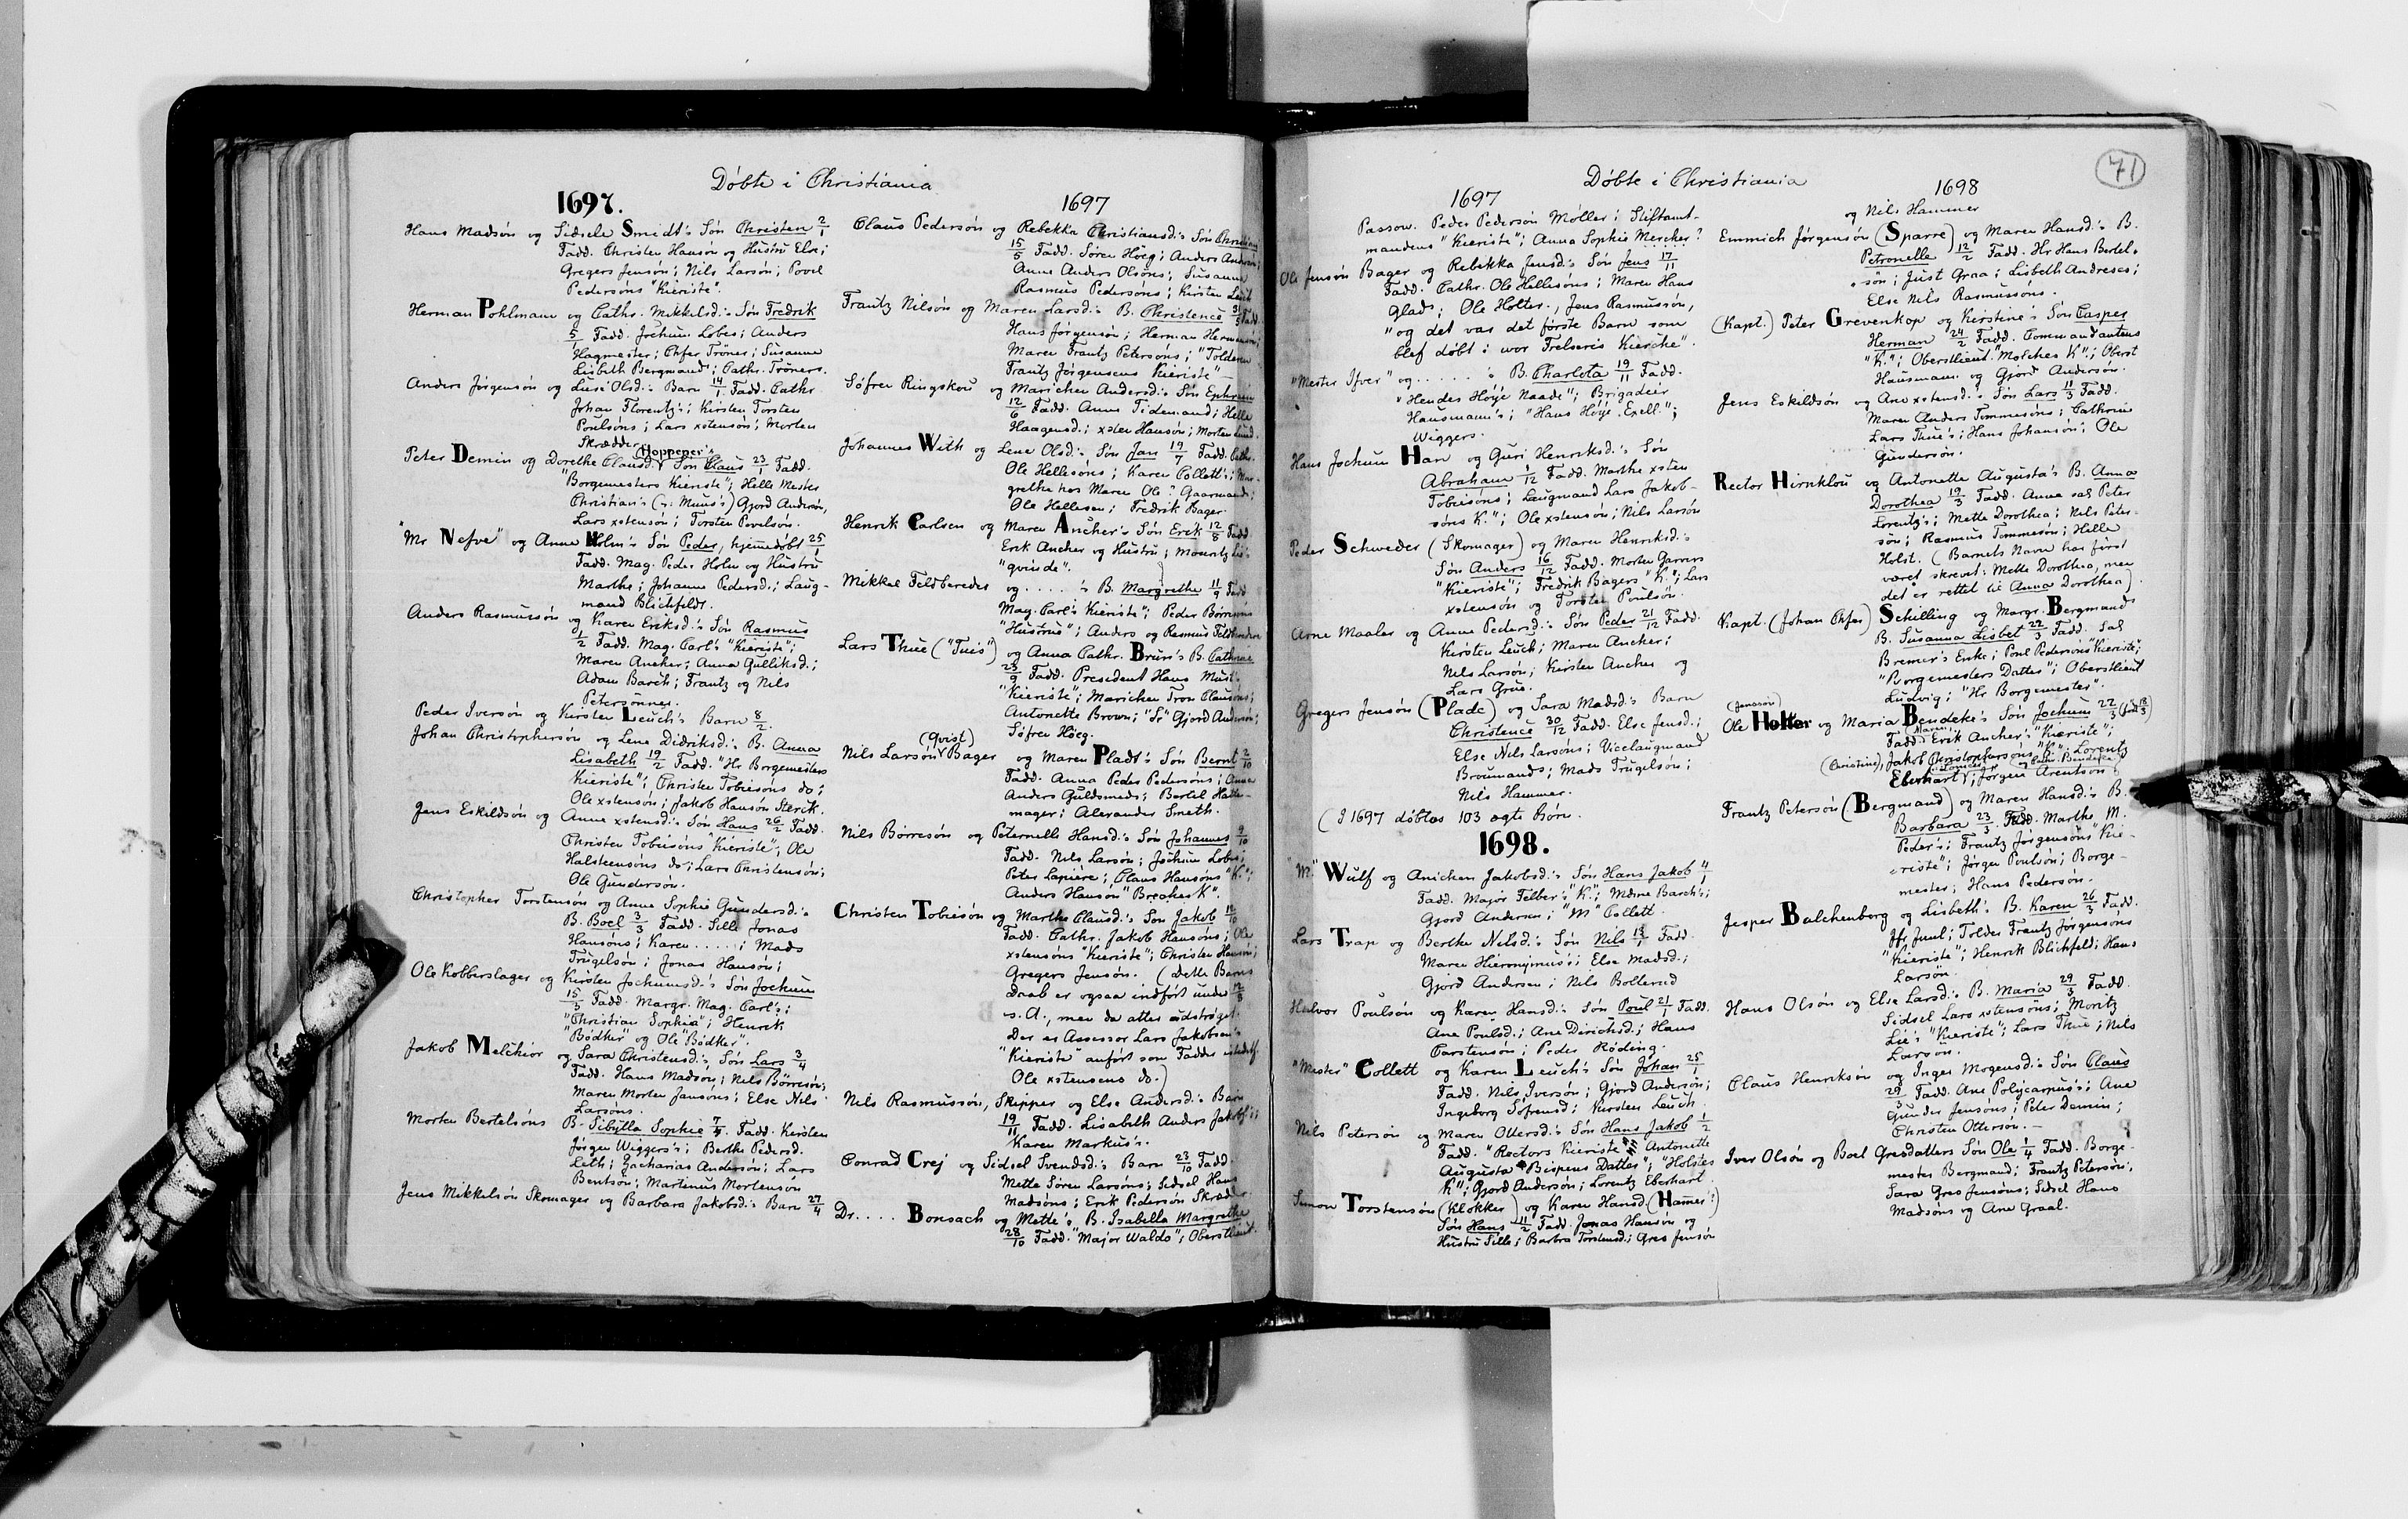 Døbte i Christiania
1697.
Hans Madsøn og Sidsele Smidt's Søn Christen 2/1
Fadd. Christen Hansøn og Hustru Else;
Gregers Jensøn; Nils Larsøn; Povel
Pedersøns "Kieriste".
Herman Pohlmann og Cathr. Mikkelsd.'s Søn Fredrik
5/1 Fadd. Jochum Lobes; Anders
Hagmester; Chfer Tröner; Susanne
Lisbeth Bergmand; Cathr. Tröners.
Anders Jørgensøn og Lusi Olsd.'s Barn 14/1 Fadd. Cathr.
Johan Florentz's; Kirsten Torsten
Poulsøns; Lars xstensøn; Morten
Skrædder.
Hoppener's
Peter Demin og Dorethe Clausd. Søn Claus 23/1 Fadd.
"Borgemesters Kieriste"; Helle Mester
Christian's (ɔ: Muus's) Gjord Andersøn,
Lars xstensøn; Torsten Povelsøn.
"Mr Nefve" og Anne Holm's Søn Peder, hjemmedøbt 25/1
Fadd. Mag. Peder Holm og Hustru
Marthe; Johanne Pedersd.; Laug-
mand Blichfeldt.
Anders Rasmussøn og Karen Eriksd.'s Søn Rasmus
1/2 Fadd. Mag. Carl's "Kieriste";
Maren Ancher; Anna Gulliksd.;
Adam Barch; Frantz og Nils
Petersønner.
Peder Iversøn og Kirsten Leuch's Barn 8/2.
Johan Christophersøn og Lene Didriksd.'s B. Anna
Lisabeth 19/2 Fadd. "Hr Borgemesters
Kieriste"; Christen Tobiesøns do;
Ole xstensøn; Jakob Hansøn Sterck.
Jens Eskildsøn og Anne xstensd.'s Søn Hans 26/2 Fadd.
Christen Tobiesøns "Kieriste"; Ole
Halsteensøns do; Lars Christensøn;
Ole Gundersøn.
Christopher Torstensøn og Anne Sophie Gundersd.'s
B. Boel 3/3 Fadd. Sille Jonas
Hansøns; Karen ....; Mads
Trugelsøn; Jonas Hansøn;
Ole Kobberslager og Kirsten Jochumsd.'s Søn Jochum
15/3 Fadd. Margr. Mag. Carl's;
"Christian Sophia"; Henrik
"Bødker" og Ole "Bødker".
Jakob Melchior og Sara Christensd.'s Søn Lars 3/4
Fadd. Hans Madsøn; Nils Børresøn;
Maren Morten Jansøns; Else Nils
Larsøns.
Morten Bertelsøns B. Sibylla Sophie 7/4. Fadd. Kirsten
Jørgen Wiggers's; Berthe Pedersd.
Leth; Zacharias Andersøn; Lars
Bentsøn; Martinus Mortensøn
Jens Mikkelsøn Skomager og Barbara Jakobsd.'s Barn 27/4
1697
Claus Pedersøn og Rebekka Christiansd.'s Søn
15/5 Fadd. Søren Höeg; Anders
Anne Anders Olsøns; Susanne
Rasmus Pedersøns; Kirsten Leuch
Frantz Nilsøn og Maren Larsd.'s B. Christence 31/5 Fadd.
Hans Jørgensøn; Herman
Maren Frantz Petersøns; "Tolderen
Frantz Jørgensens Kieriste"
Søfren Ringskou og Marichen Andersd.'s Søn Ephraim
12/6 Fadd. Anne Tidemand; Helle
Haagensd.; xsten Hansøn; Morten Lund.
Johannes With og Lene Olsd.'s Søn Jan 19/7 Fadd. Cathr.
Ole Hellesøns; Karen Collett's; Mar-
grethe hos Maren Ole? Gaarmands;
Ole Hellesen; Fredrik Bager.
Henrik Carlsen og Maren Ancher's Søn Erik 12/8 Fadd.
Erik Ancher og Hustru; Mouritz Lie's
"qvinde".
Mikkel Feldbereder og ....'s B. Margrethe 11/9 Fadd.
Mag. Carl's Kieriste"; Peder Børresøns
"Hustrue"; Anders og Rasmus Feldbereder
Lars Thue ("Tuis") og Anna Cathr. Brun's B. Cathrine
23/9 Fadd. President Hans Must's
"Kieriste"; Marichen Tron Clausøns;
Antonette Brown; "Sr" Gjord Andersøn;
Søfren Höeg.
(Qvist)
Nils Larsøn Bager og Maren Pladt's Søn Bernt 2/10
Fadd. Anna Peder Pedersøns; Anne
Anders Guldsmeds; Bertel Hatte-
mager; Alexander Smeth.
Nils Börresøn og Peternelle Hansd.'s Søn Johannes 9/10
Fadd. Nils Larsøn; Jochum Lobes;
Peter Lapiére; Claus Hansøns "K.";
Anders Hansøn "Brechers K".
Christen Tobiesøn og Marthe Clausd.'s Søn Jakob 12/10
Fadd. Cathr. Jakob Hansøns; Ole
xstensøns "Kieriste"; Christen Hansøn;
Gregers Jensøn. (Dette Barns
Daab er ogsaa indført under 12/3
s. A., men da atter udstrøget.
Der er Assessor Lars Jakobsen's
"Kieriste" anført som Fadder istedetf.
Ole xstensens do.)
Nils Rasmussøn, Skipper og Else Andersd.'s Barn
19/11 Fadd. Lisabeth Anders Jakobs's;
Karen Markus's.
Conrad Crej og Sidsel Svendsd.'s Barn 23/10 Fadd.
Mette Søren Larsøns; Sidsel Hans
Madsøns; Erik Pedersøn Skrædder
Dr. .... Bonsach og Mette's B. Isabella Margrethe
28/10 Fadd. "Major Waldo"; Oberstlieut.
71
Døbte i Christiania
1697
Passow. Peder Pedersøn Møller; Stiftamt-
mandens "Kieriste"; Anna Sophie Mercher?
Ole Jensøn Bager og Rebekka Jensd.'s Søn Jens 17/11
Fadd. Cathr. Ole Hellesøns; Maren Hans
Glads; Ole Holter., Jens Rasmussøn,
"og det var det første Barn som
blef døbt i wor Frelseris Kierche".
"Mester Ifver" og ......'s B. Charlota 19/11 Fadd.
"Hendes Höje Naade"; Brigadeir
Hausmann's; "Hans Höje Exell.";
Wiggers.
Hans Jochum Harv og Guri Henriksd.'s Søn
Abraham 1/12 Fadd. Marthe xsten
Tobiesøns; Laugmand Lars Jakob-
søns K."; Ole xstensøn; Nils Larsøn
Peder Schweder (Skomager) og Maren Henriksd.'s
Søn Anders 16/12 Fadd. Morten Garvers
"Kieriste"; Fredrik Bagers "K."; Lars
xstensøn og Torsten Poulsøn.
Arne Maaler og Anne Pedersd.'s Søn Peder 21/12 Fadd.
Kirsten Leuch; Maren Ancher;
Nils Larsøn; Kirsten Ancher og
Lars Grue.
Gregers Jensøn (Plade) og Sara Madsd.'s Barn
Christence 30/12 Fadd. Else Jensd.;
Else Nils Larsøns; Vicelaugmand
Broumands; Mads Trugelsøn;
Nils Hammer.
(I 1697 døbtes 103 ægte børn.
1698.
"M." Wulf og Anichen Jakobsd.'s Søn Hans Jakob 4/1
Fadd. Major Felber's, "K."; Mdme Barch's;
Gjord Andersen; "M" Collett.
Lars Trap og Berthe Nilsd.'s Søn Nils 13/1 Fadd.
Maren Hieronymus's; Else Madsd.;
Gjord Andersen; Nils Bollerud
Halvor Poulsøn og Karen Hansd.'s Søn Poul 21/1 Fadd.
Ane Poulsd.; Ane Dirichsd.; Hans
Carstensøn; Peder Röding.
"Mester" Collett og Karen Leuch's Søn Johan 25/1
Fadd. Nils Iversøn; Gjord Andersøn;
Ingeborg Søfrensd.; Kirsten Leuch.
Nils Petersøn og Maren Ottersd.'s Søn Hans Jakob 1/2
Fadd. "Rectors Kieriste"; Antonette
Augusta "Bispens Datter"; "Holstes
K"; Gjord Andersøn; Lorentz Eberhart.
Simon Torstensøn (Klokker) og Karen Hansd. (Hamer?)
Søn Hans 11/2 Fadd. Jonas Hansøn og
Hustru Sille; Barbra Torstensd.; Gres Jensøn
1698
og Nils Hammer
Emmich Jørgensøn (Sparre) og Maren Hansd.'s B.
Petronelle 12/2 Fadd. Hr Hans Bertel-
søn; Just Graa; Lisbeth Andreses;
Else Nils Rasmussøns.
(Kapt.) Peter Grevenkop og Kirstene's Søn Casper
Herman 24/2 Fadd. Commandantens
"K."; Oberstlieut. "Molches K."; Oberst
Hausmann og Gjord Andersøn.
Jens Eskildsøn og Ane xstensd.'s Søn Lars 11/3 Fadd.
Maren Anders Tommesøns; Cathrine
Lars Thue's; Hans Johansøn; Ole
Gundersøn.
Rector Hirnklou og Antonette Augusta's B. Anna
Dorothea 19/3 Fadd. Anna sal Peter
Lorentz's; Mette Dorothea; Nils Peter-
søn; Rasmus Tommesøn; Helle
Holst. (Barnets Navn har først
været skrevet: Mette Dorothea, men
det er rettet til Anna Dorothea).
Kapt. (Johan Chfer) Schilling og Margr. Bergmands
B. Susanna Lisbet 22/3 Fadd. Sal
Bremer's Enke; Poul Pedersøns "Kieriste";
"Borgemesters Datter"; Oberstlieut
Ludvig; "Hr Borgemester".
(Jenssøn)
Ole Holter og Maria Bendeke's Søn Jochum 22/3 (født 18/3)
Fadd. (Maren) Erik Ancher's "Kieriste";
(Christine), Jakob Christophersøns "K."; Lorentz
Eberhart; Jørgen Arentsøn
Frantz Petersøn (Bergmand) og Maren Hansd.'s B.
Barbara 23/3. Fadd. Marthe M.
Peder's; Frantz Jørgensøns "Kie-
riste"; Jørgen Poulsøn; Borge-
mester; Hans Pedersøn.
Jesper Balchenborg og Lisbeth's B. Karen 26/3 Fadd.
Jfr Juul; Tolder Frantz Jørgensøns
"Kieriste"; Henrik Blichfeld; Hans
Larsøn.
Hans Olsøn og Else Larsd.'s B. Maria 29/3 Fadd.
Sidsel Lars xstensøns; Moritz
Lie's "Kieriste"; Lars Thue; Nils
Larsøn.
Claus Henriksøn og Inger Mogensd.'s Søn Claus
29/3 Fadd. Ane Polycarpus's; Ane
Gunder Jensøns; Peter Demin;
Christen Ottersøn.
Iver Olsøn og Boel Gresdatters Søn Ole 1/4 Fadd. Borge-
mester Bergmand; Frantz Petersøn;
Sara Gres Jensøns; Sidsel Hans
Madsøns og Ane Graal.